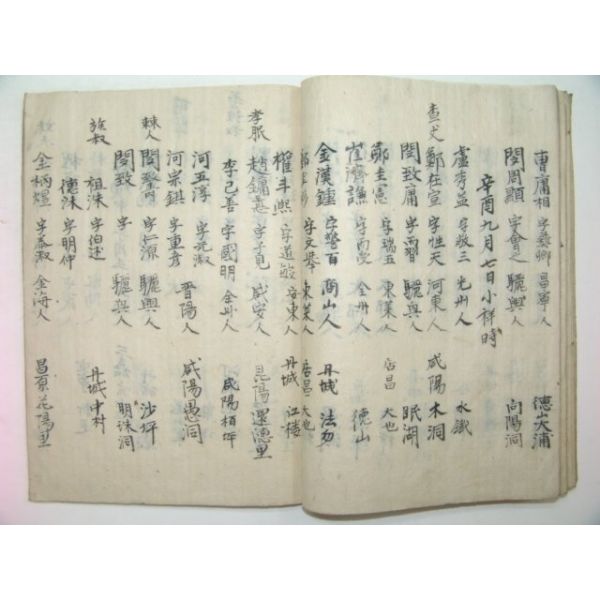 曺庸相 字彝卿 昌寧人 德山大浦
閔周顯 字會之 驪興人 向陽洞
辛酉九月七日小祥時
盧秀益 字敬三 光州人 水鐵
査丈 鄭在宣 字性天 河東人 咸陽木洞
閔致庸 字而習 驪興人 眠湖
鄭圭憲 字瑞五 東萊人 居昌大也
崔濟謙 字而受 全州人 德山
金漢鍾 字警百 商山人 丹城法勿
字文擧 東萊人 居昌大也
權斗熙 字道敏 安東人 丹城江樓
孝服 趙鏞憲 字子見 咸安人 昆陽還德里
李己善 字國明 全州人 咸陽栢坪
河五淳 字元淑
河宗鎮 字重彦 晋陽人 咸陽愚洞
棘人 閔 字仁源 驪興人 沙坪
閔致 字 驪興人 明洙洞
族叔 祖洙 字伯述 丹城中村
德洙 字明仲
金柄煌 字泰淑 金海人 昌原花陽里